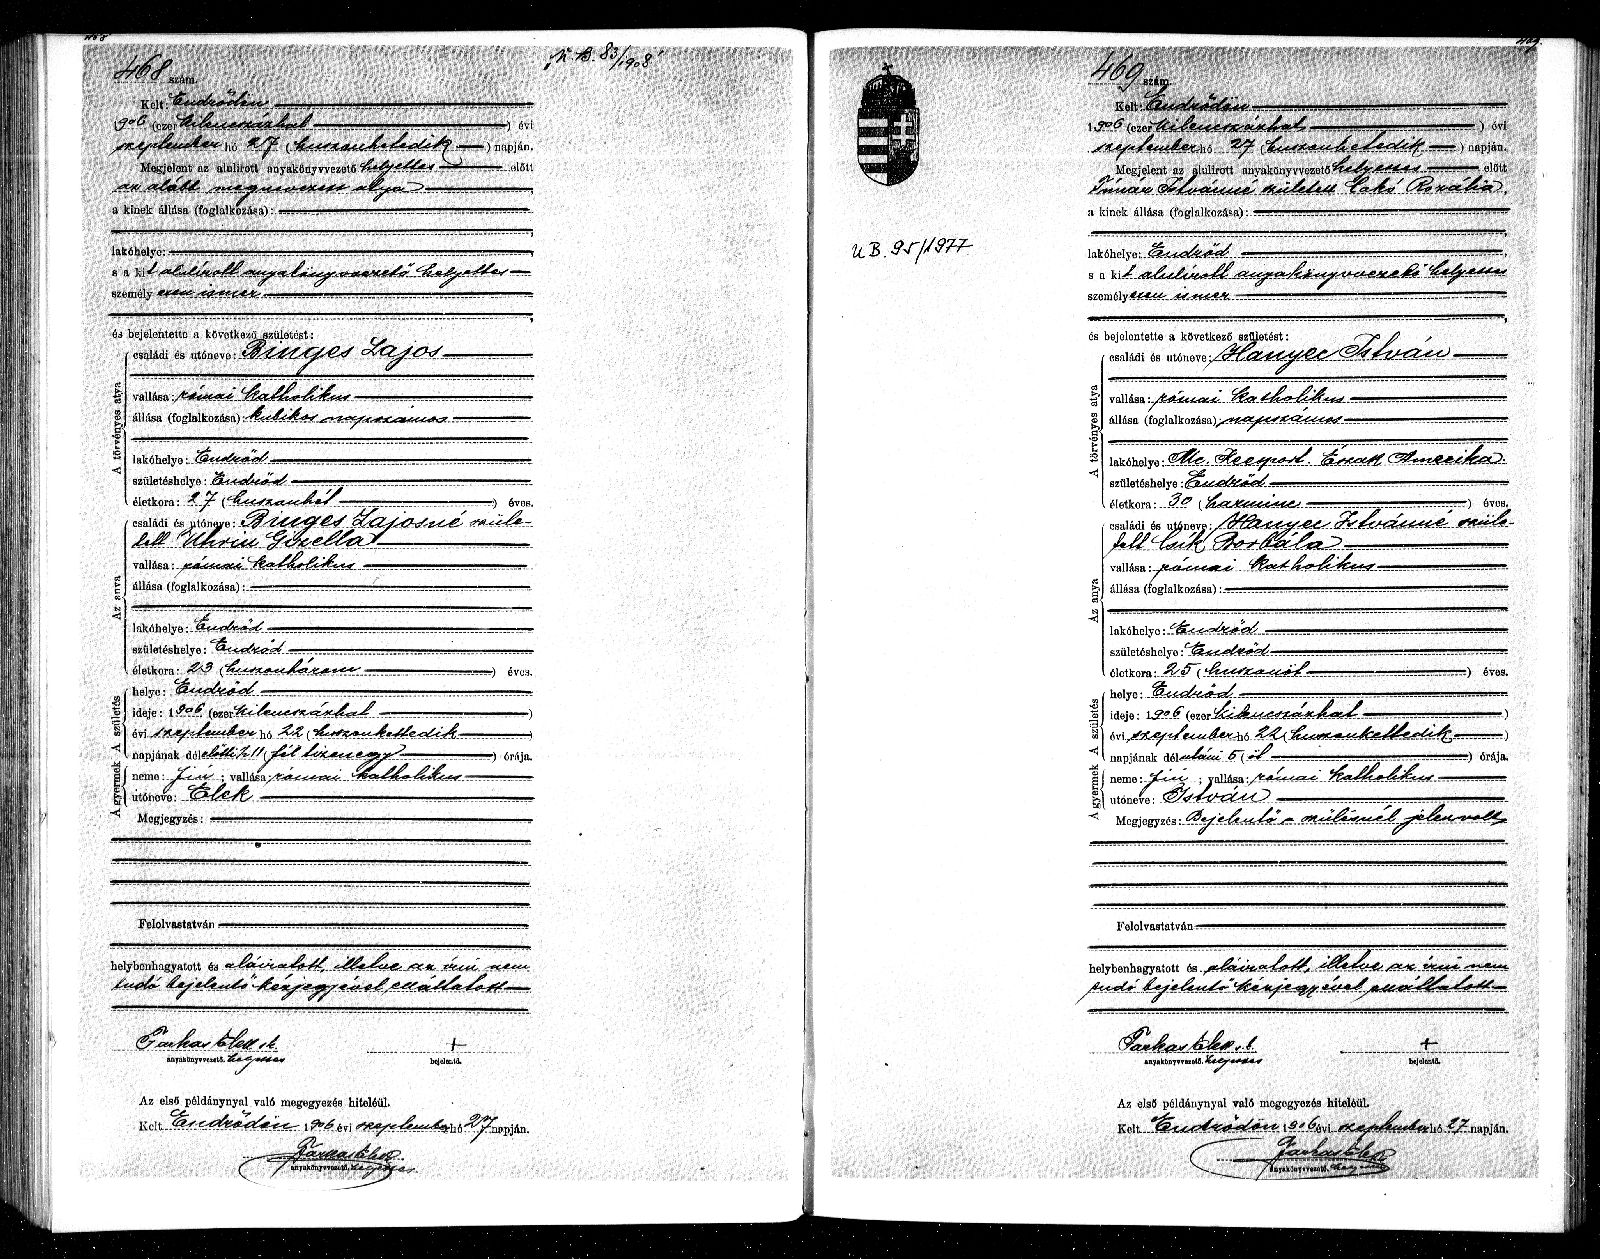 468
468 szám.
N. B. 83/1908
Kelt: Endrődön
1906 (ezer kilenczszázhat) évi
szeptember hó 27 (huszonhetedik) napján.
Megjelent az alulirott anyakönyvvezető helyettes előtt
az alább megnevezett atya
a kinek állása (foglalkozása):
lakóhelye:
s a kit alulírott anyakönyvvezető helyettes
személyesen ismer
és bejelentette a következő születést:
A törvényes atya
családi és utóneve: Binges Lajos
vallása: római katholikus
állása (foglalkozása): kubikos napszámos
lakóhelye: Endrőd
születéshelye: Endrőd
életkora: 27 (huszonhét) éves.
Az anya
családi és utóneve: Binges Lajosné szüle-
tett Uhrin Gizella
vallása: római katholikus
állása (foglalkozása):
lakóhelye: Endrőd
születéshelye: Endrőd
életkora: 23 (huszonhárom) éves.
A születés
helye: Endrőd
ideje: 1906 (ezer kilenczszázhat)
évi szeptember hó 22 (huszonkettedik)
napjának délelőtti ½11 (fél tizenegy) órája.
A gyermek
neme: fiú; vallása: római katholikus
utóneve: Elek
Megjegyzés:
Felolvastatván
helybenhagyatott és aláíratott, illetve az írni nem
tudó bejelentő kézjegyével elláttatott
Farkas Elek s.k. +
anyakönyvvezető. helyettes bejelentő.
Az első példánynyal való megegyezés hiteléül.
Kelt Endrődön 1906 évi szeptember hó 27 napján.
Farkas Elek
anyakönyvvezető. helyettes
469.
469 szám
U B. 95/1977
Kelt: Endrődön
1906 (ezer kilenczszázhat) évi
szeptember hó 27 (huszonhetedik) napján.
Megjelent az alulirott anyakönyvvezető helyettes előtt
Timár Istvánné született Czakó Rozália
a kinek állása (foglalkozása):
lakóhelye: Endrőd
s a kit alulírott anyakönyvvezető helyettes
személyesen ismer
és bejelentette a következő születést:
A törvényes atya
családi és utóneve: Hanyec István
vallása: római katholikus
állása (foglalkozása) napszámos
lakóhelye: Mc. Keesport. Észak Amerika.
születéshelye: Endrőd
életkora: 30 (harmincz) éves.
Az anya
családi és utóneve: Hanyec Istvánné szüle-
tett Csik Borbála
vallása: római katholikus
állása (foglalkozása):
lakóhelye: Endrőd
születéshelye: Endrőd
életkora: 25 (huszonöt) éves.
A születés
helye: Endrőd
ideje: 1906 (ezer kilenczszázhat)
évi szeptember hó 22 (huszonkettedik)
napjának délutáni 5 (öt) órája.
A gyermek
neme: fiú; vallása: római katholikus
utóneve: István
Megjegyzés: Bejelentő a szülésnél jelen volt
Felolvastatván
helybenhagyatott és aláíratott, illetve az írni nem
tudó bejelentő kézjegyével elláttatott
Farkas Elek s.k. +
anyakönyvvezető. helyettes bejelentő.
Az első példánynyal való megegyezés hiteléül.
Kelt Endrődön 1906 évi szeptember hó 27 napján.
Farkas Elek
anyakönyvvezető. helyettes